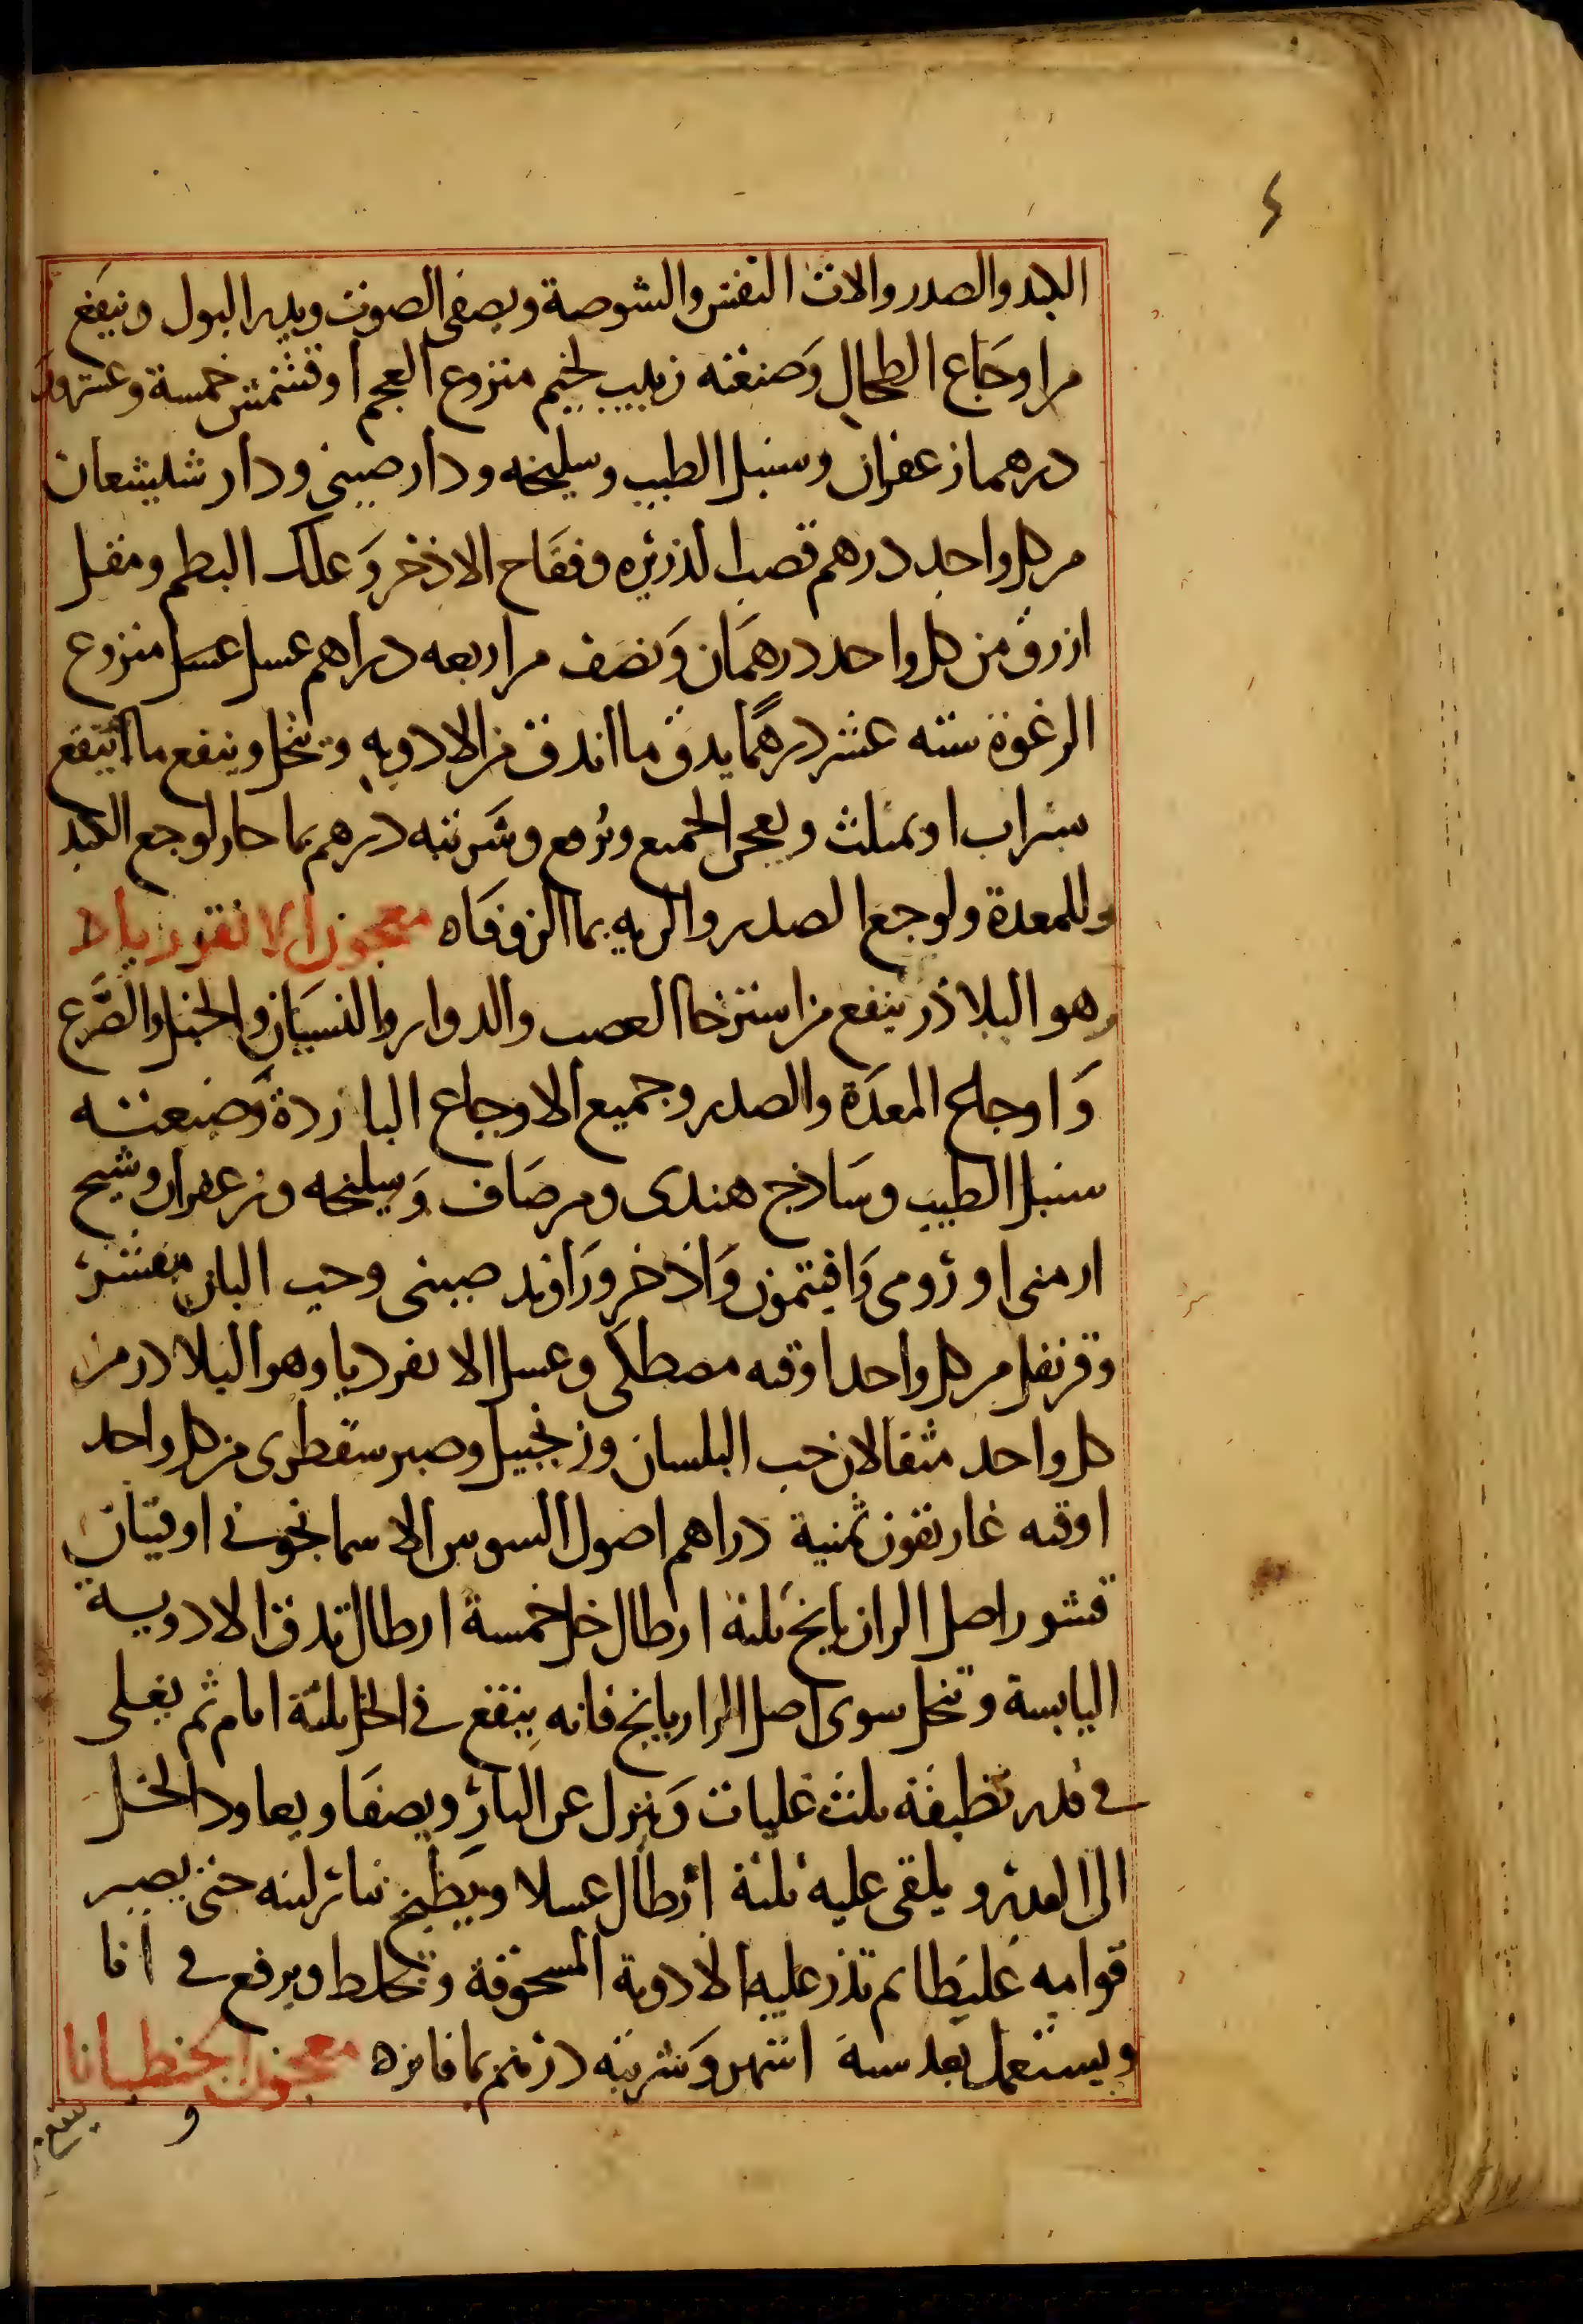 ٤
الكبد والصدر والات النفس والشوصة ويصفى الصوت ويدر البول وينفع
من اوجاع الطحال وصنعته زبيب لخيم منزوع العجم او قشمش خمسة وعشرون
درهما زعفران وسنبل الطيب وسليخه ودار صيني ودار شليشعان
من كل واحد درهم قصب الذريره وفقاح الاذخر وعلك البطم ومقل
ازرق من كل واحد درهمان ونصف مر اربعه دراهم عسل عسل منزوع
الرغوة سته عشر درهمًا يدق ما اندق من الادويه وتنخل وينقع ما انتقع
بشراب او بمثلث ويعجن الجميع ويرفع وشربته درهم بما حار لوجع الكبد
وللمعدة ولوجع الصدر والريه بما الزوفاه معجون الانقرديا
وهو البلاذر ينفع من استرخا العصب والدوار والنسيان والخبل والصرع
واوجاع المعدة والصدر وجميع الاوجاع الباردة وصنعته
سنبل الطيب وساذج هندى ومر صاف وسليخه وزعفران وشيح
ارمنى او رومى وافيتمون واذخر وراوند صينى وحب البان مقشر
وقرنفل من كل واحد اوقيه مصطكى وعسل الانقرديا وهو البلادر من
كل واحد مثقالان حب البلسان وزنجبيل وصبر سقطرى من كل واحد
اوقيه غاريقون ثمنية دراهم اصول السوس الاسمانجونى اوقيتان
قشور اصل الرازيانج ثلثة ارطال خل خمسة ارطال تدق الادوية
اليابسة وتنخل سوى اصل الرازيانج فانه ينقع في الخل ثلثة ايام ثم يغلى
في قدر نظيفة ثلث غليات وينزل عن النار ويصفا ويعاود الخل
الى القدر ويلقى عليه ثلثة ارطال عسلا ويطبخ بنار لينه حتى يصير
قوامه غليظا ثم تذر عليه الادوية المسحوقة وتخلط ويرفع في انا
ويستعمل بعد ستة اشهر وشربته درهم بما فاتره معجون الجنطيانا